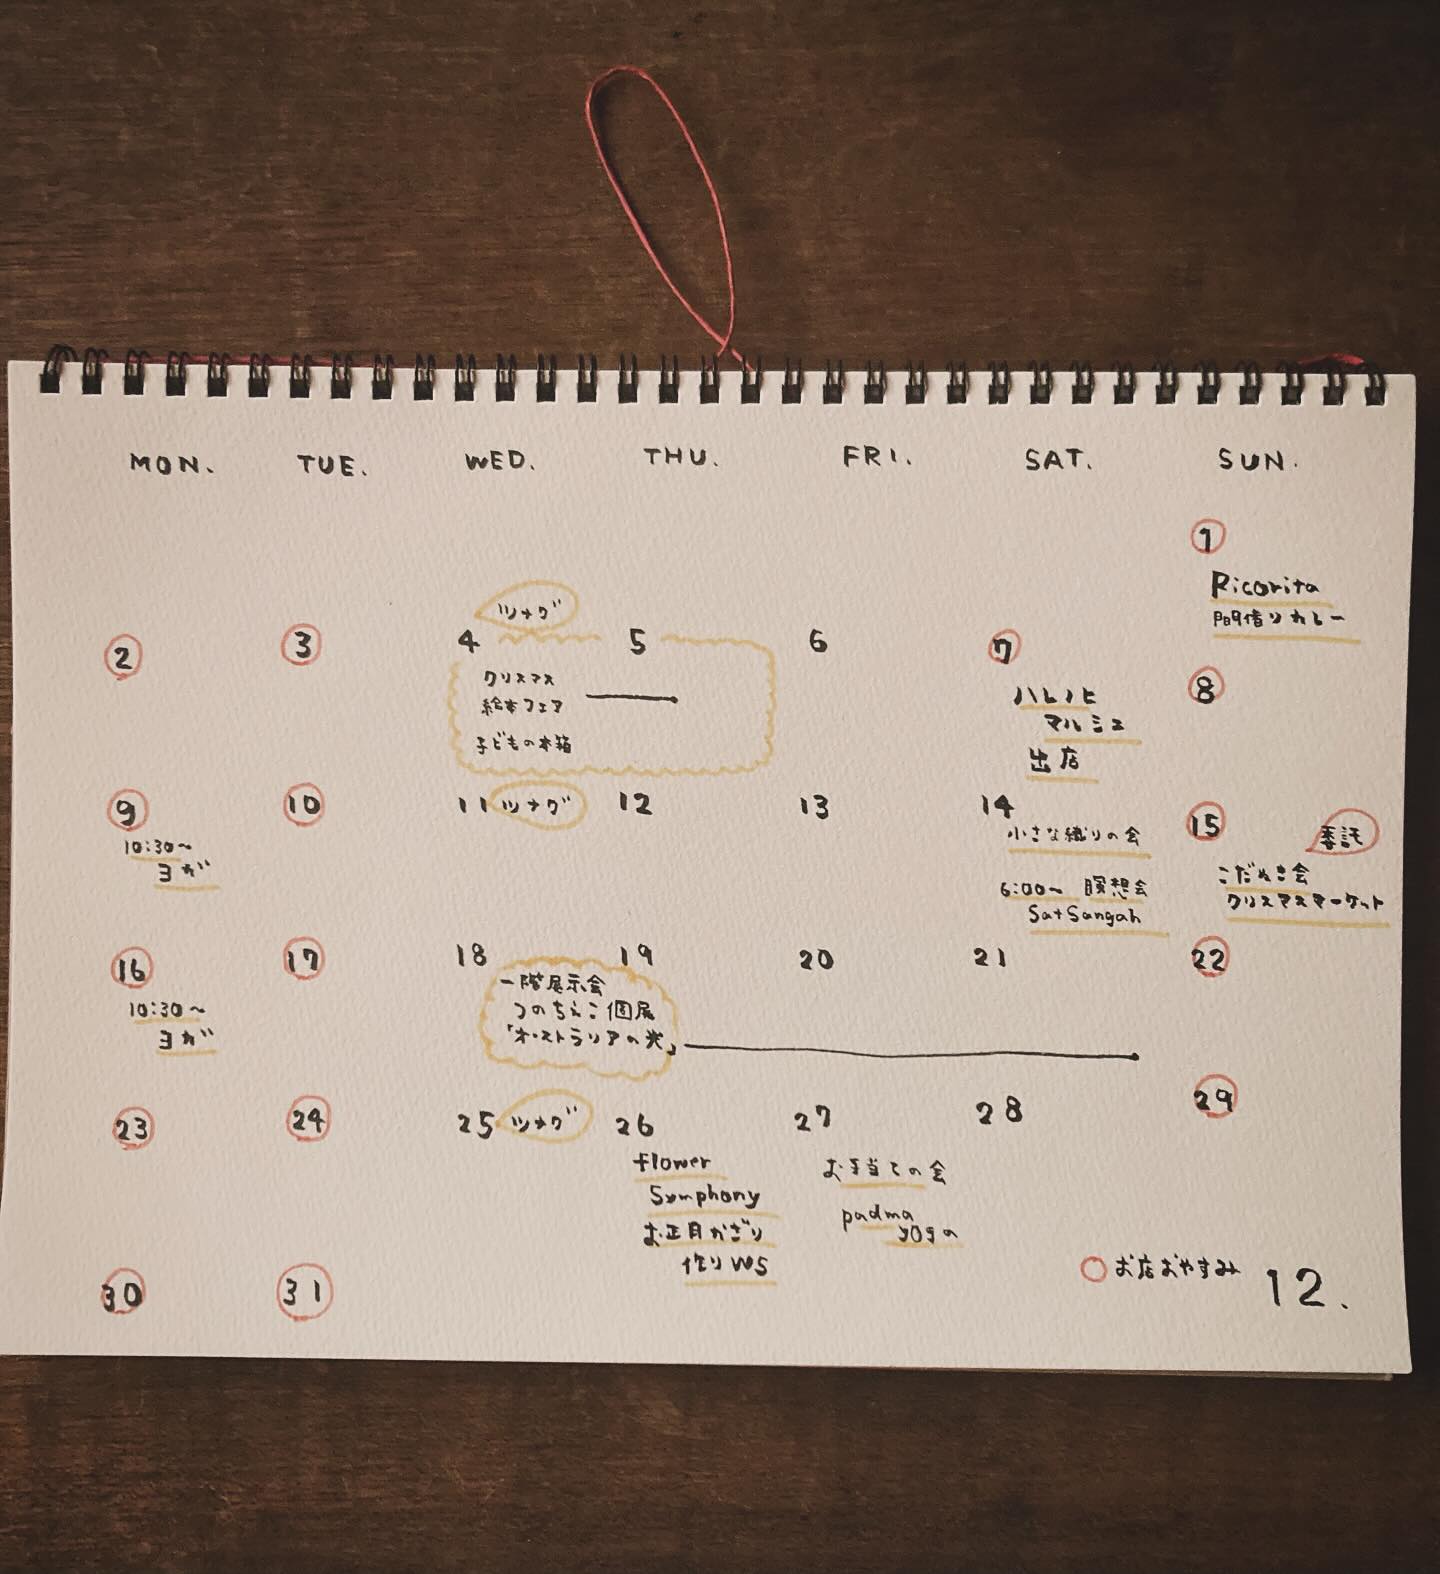 MON. TUE. WED. THU. FRI. SAT. SUN.
1
Ricorita
間借りカレー
2 3 4 ツナグ 5 6 7 8
クリスマス
絵本フェア
子どもの本箱
ハレノヒ
マルシェ
出店
9 10 11 ツナグ 12 13 14 15 委託
10:30〜
ヨガ
小さな織りの会
6:00〜 瞑想会
SatSangah
こだぬき会
クリスマスマーケット
16 17 18 19 20 21 22
10:30〜
ヨガ
一階展示会
つのちえこ個展
「オーストラリアの光」
23 24 25 ツナグ 26 27 28 29
flower
Symphony
お正月かざり
作りWS
お手当ての会
padma
yoga
30 31
お店おやすみ 12.